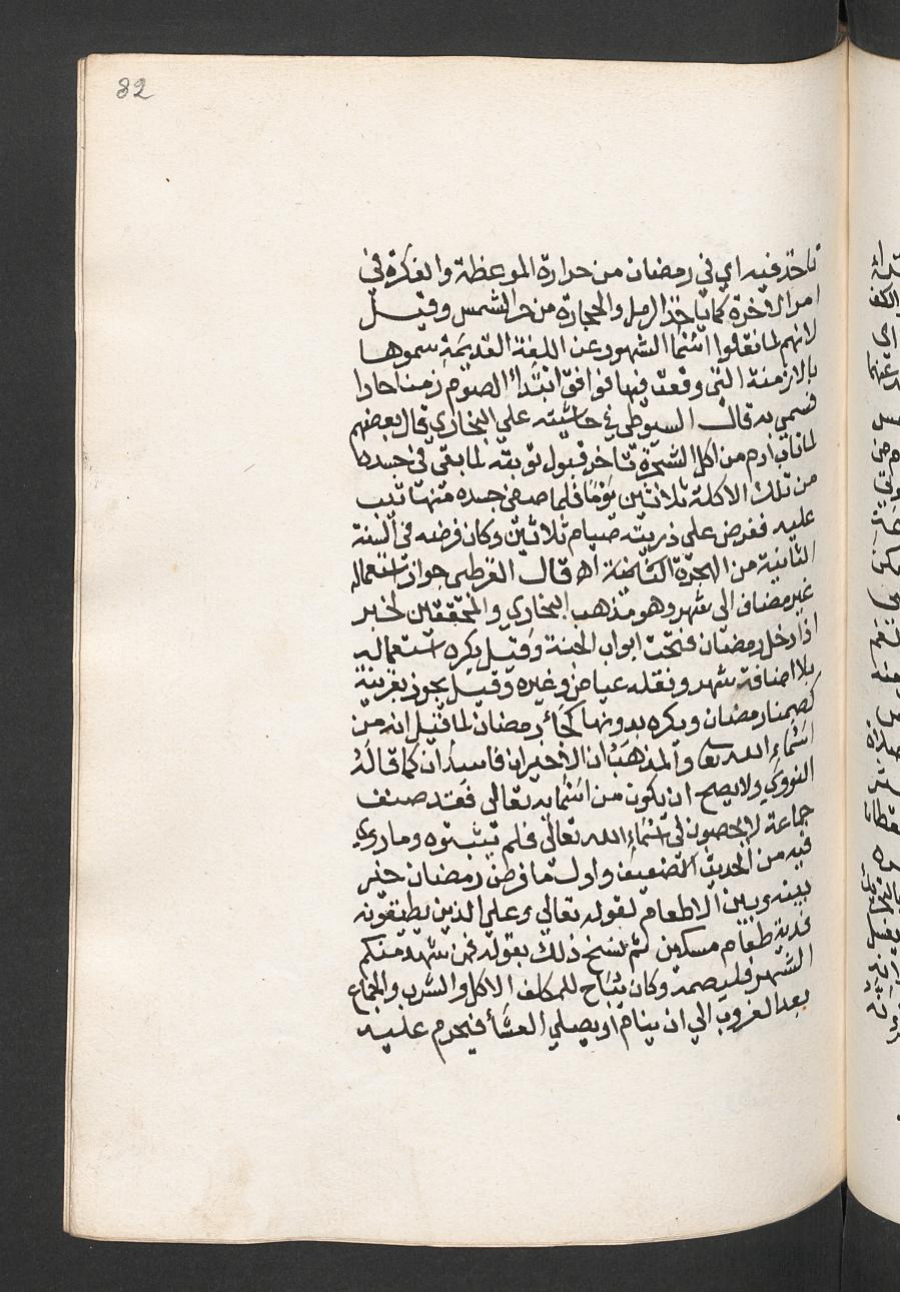 82
تاخذ فيه اي في رمضان من حرارة الموعظة والفكرة في
امر الاخرة كما ياخذ الرمل والحجارة من حر الشمس وقيل
لانهم لما نقلوا اسما الشهور عن اللغة القديمة سموها
بالازمنة التي وقعت فيها فوافق ابتدا الصوم زمنا حارا
فسمي به قال السيوطي في حاشيته علي البخاري قال بعضهم
لما تاب ادم من اكل الشجرة تاخر قبول توبته لما بقي في جسده
من تلك الاكلة ثلاثين يوما فلما صفي جسده منها تيب
عليه ففرض علي ذريته صيام ثلاثين وكان فرضه في السنة
الثانية من الهجرة اه قال القرطبي جواز استعماله
غير مضاف الي شهر وهو مذهب البخاري والمحققين لخبر
اذا دخل رمضان فتحت ابواب الجنة وقيل يكره استعماله
بلا اضافة شهر ونقله عياض وغيره وقيل يجوز بقرينة
كصمنا رمضان ويكره بدونها كجاء رمضان لما قيل انه من
اسماء الله تعا والمذهبان الاخيران فاسدان كما قاله
النووي ولا يصح ان يكون من اسمايه تعالي فقد صنف
جماعة لا يحصون في اسماء الله تعالي فلم يثبتوه وما روي
فيه من الحديث الضعيف واول ما فرض رمضان خير
بينه وبين الاطعام لقوله تعالي وعلي الذين يطيقونه
فدية طعام مسكين ثم نسخ ذلك بقوله فمن شهد منكم
الشهر فليصمه وكان يباح للمكلف الاكل والشرب والجماع
بعد الغروب الي ان ينام او يصلي العشا فيحرم عليه